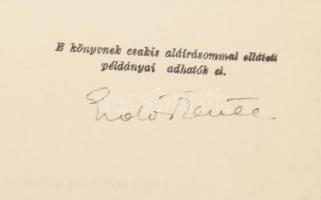 E könyvnek csakis aláírásommal ellátott
példányai adhatók el.
Erdős Renée